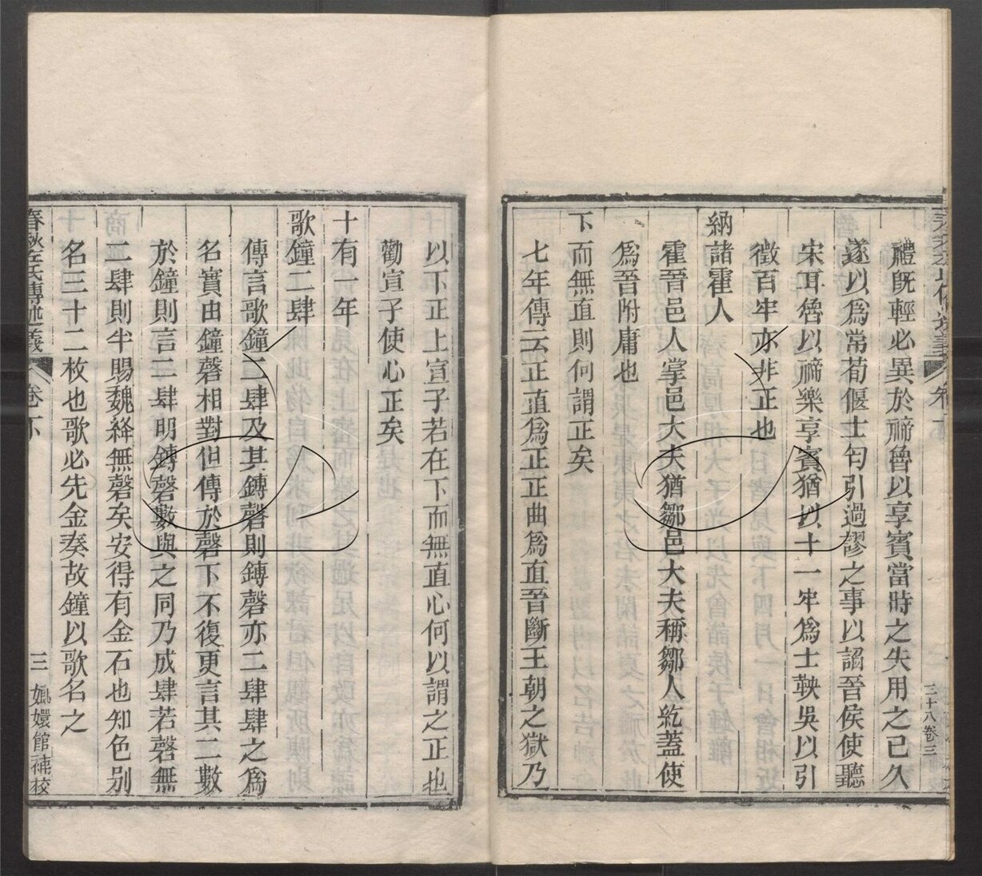 禮旣輕必異於禘魯以享賓當時之失用之已久
遂以爲常荀偃士匄引過謬之事以諂晉侯使聽
宋耳魯以禘樂享賓猶以十一牢爲士鞅吳以引
徵百牢亦非正也
納諸霍人
霍晉邑人掌邑大夫猶鄹邑大夫稱鄹人紇蓋使
爲晉附庸也
下而無直則何謂正矣
七年傳云正直爲正正曲爲直晉斷王朝之獄乃
三十八卷三
以下正上宣子若在下而無直心何以謂之正也
勸宣子使心正矣
十有一年
歌鐘二肆
傳言歌鐘二肆及其鏄磬則鏄磬亦二肆肆之爲
名實由鐘磬相對但傳於磬下不復更言其二數
於鐘則言二肆明鏄磬數與之同乃成肆若磬無
二肆則半賜魏絳無磬矣安得有金石也知色别
名三十二枚也歌必先金奏故鐘以歌名之
春秋左氏傳述義 卷下 三 嫏嬛館補校